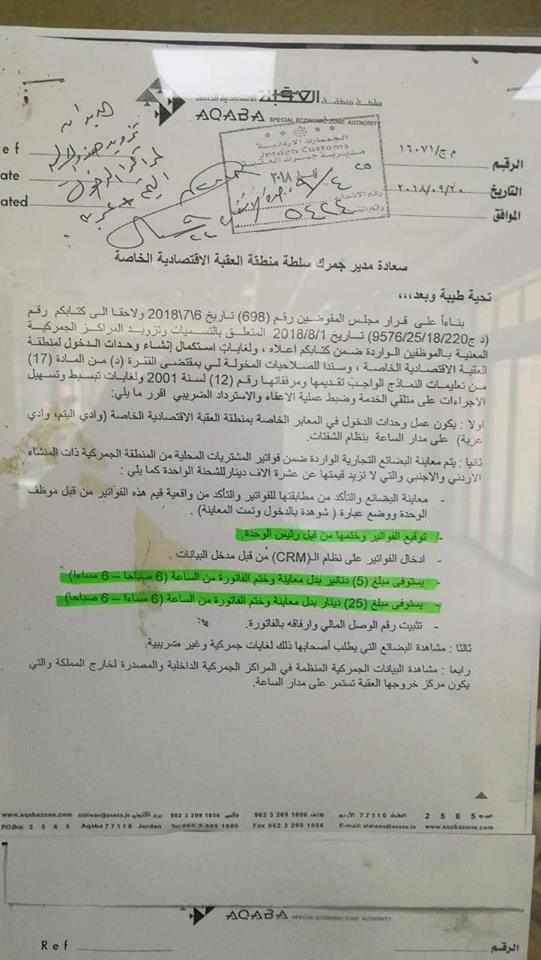 سلطة منطقة العقبة الاقتصادية الخاصة
AQABA SPECIAL ECONOMIC ZONE AUTHORITY
الجمارك الأردنية
Jordan Customs
ef
الرقم م ج/١٦٠٧١
ate
التاريخ ٢٠١٨/٠٩/٢٠
ated
الموافق
سعادة مدير جمرك سلطة منطقة العقبة الاقتصادية الخاصة
تحية طيبة وبعد،،،
بناءاً على قرار مجلس المفوضين رقم (698) تاريخ 2018\7\6 ولاحقا الى كتابكم رقم
(د ج/220/18/25/9576) تاريخ 2018/8/1 المتعلق بالتسميات وتزويد المراكز الجمركية
المعنية بالموظفين الواردة ضمن كتابكم اعلاه ، ولغايات استكمال إنشاء وحدات الدخول لمنطقة
العقبة الاقتصادية الخاصة ، وسندا للصلاحيات المخولة لي بمقتضى الفقرة (د) من المادة (17)
من تعليمات النماذج الواجب تقديمها ومرفقاتها رقم (12) لسنة 2001 ولغايات تبسيط وتسهيل
الاجراءات على متلقي الخدمة وضبط عملية الاعفاء والاسترداد الضريبي اقرر ما يلي:
اولا : يكون عمل وحدات الدخول في المعابر الخاصة بمنطقة العقبة الاقتصادية الخاصة (وادي اليتم، وادي
عربة) على مدار الساعة بنظام الشفتات.
ثانيا : يتم معاينة البضائع التجارية الواردة ضمن فواتير المشتريات المحلية من المنطقة الجمركية ذات المنشاء
الاردني والاجنبي والتي لا تزيد قيمتها عن عشرة الاف دينار للشحنة الواحدة كما يلي :
- معاينة البضائع والتأكد من مطابقتها للفواتير والتأكد من واقعية قيم هذه الفواتير من قبل موظف
الوحدة ووضع عبارة ( شوهدة بالدخول وتمت المعاينة) .
- توقيع الفواتير وختمها من قبل رئيس الوحدة.
- ادخال الفواتير على نظام الـ(CRM) من قبل مدخل البيانات .
- يستوفى مبلغ (5) دنانير بدل معاينة وختم الفاتورة من الساعة (6 صباحا – 6 مساءا)
- يستوفى مبلغ (25) دينار بدل معاينة وختم الفاتورة من الساعة (6 مساءا – 6 صباحا)
- تثبيت رقم الوصل المالي وارفاقه بالفاتورة.
ثالثا : مشاهدة البضائع التي يطلب أصحابها ذلك لغايات جمركية وغير ضريبية.
رابعا : مشاهدة البيانات الجمركية المنظمة في المراكز الجمركية الداخلية والمصدرة لخارج المملكة والتي
يكون مركز خروجها العقبة تستمر على مدار الساعة.
www.aqabazone.com aldiwan@aseza.jo بريد الكتروني 962 3 209 1056 فاكس 962 3 209 1000 هاتف العقبة 77110 الأردن 2565 ص.ب
P.O.Box 2565 Aqaba 77110 Jordan Tel 962 3 209 1000 Fax 962 3 209 1056 E-mail: aldiwan@aseza.jo www.aqabazone.com
AQABA SPECIAL ECONOMIC ZONE AUTHORITY
Ref
الرقم